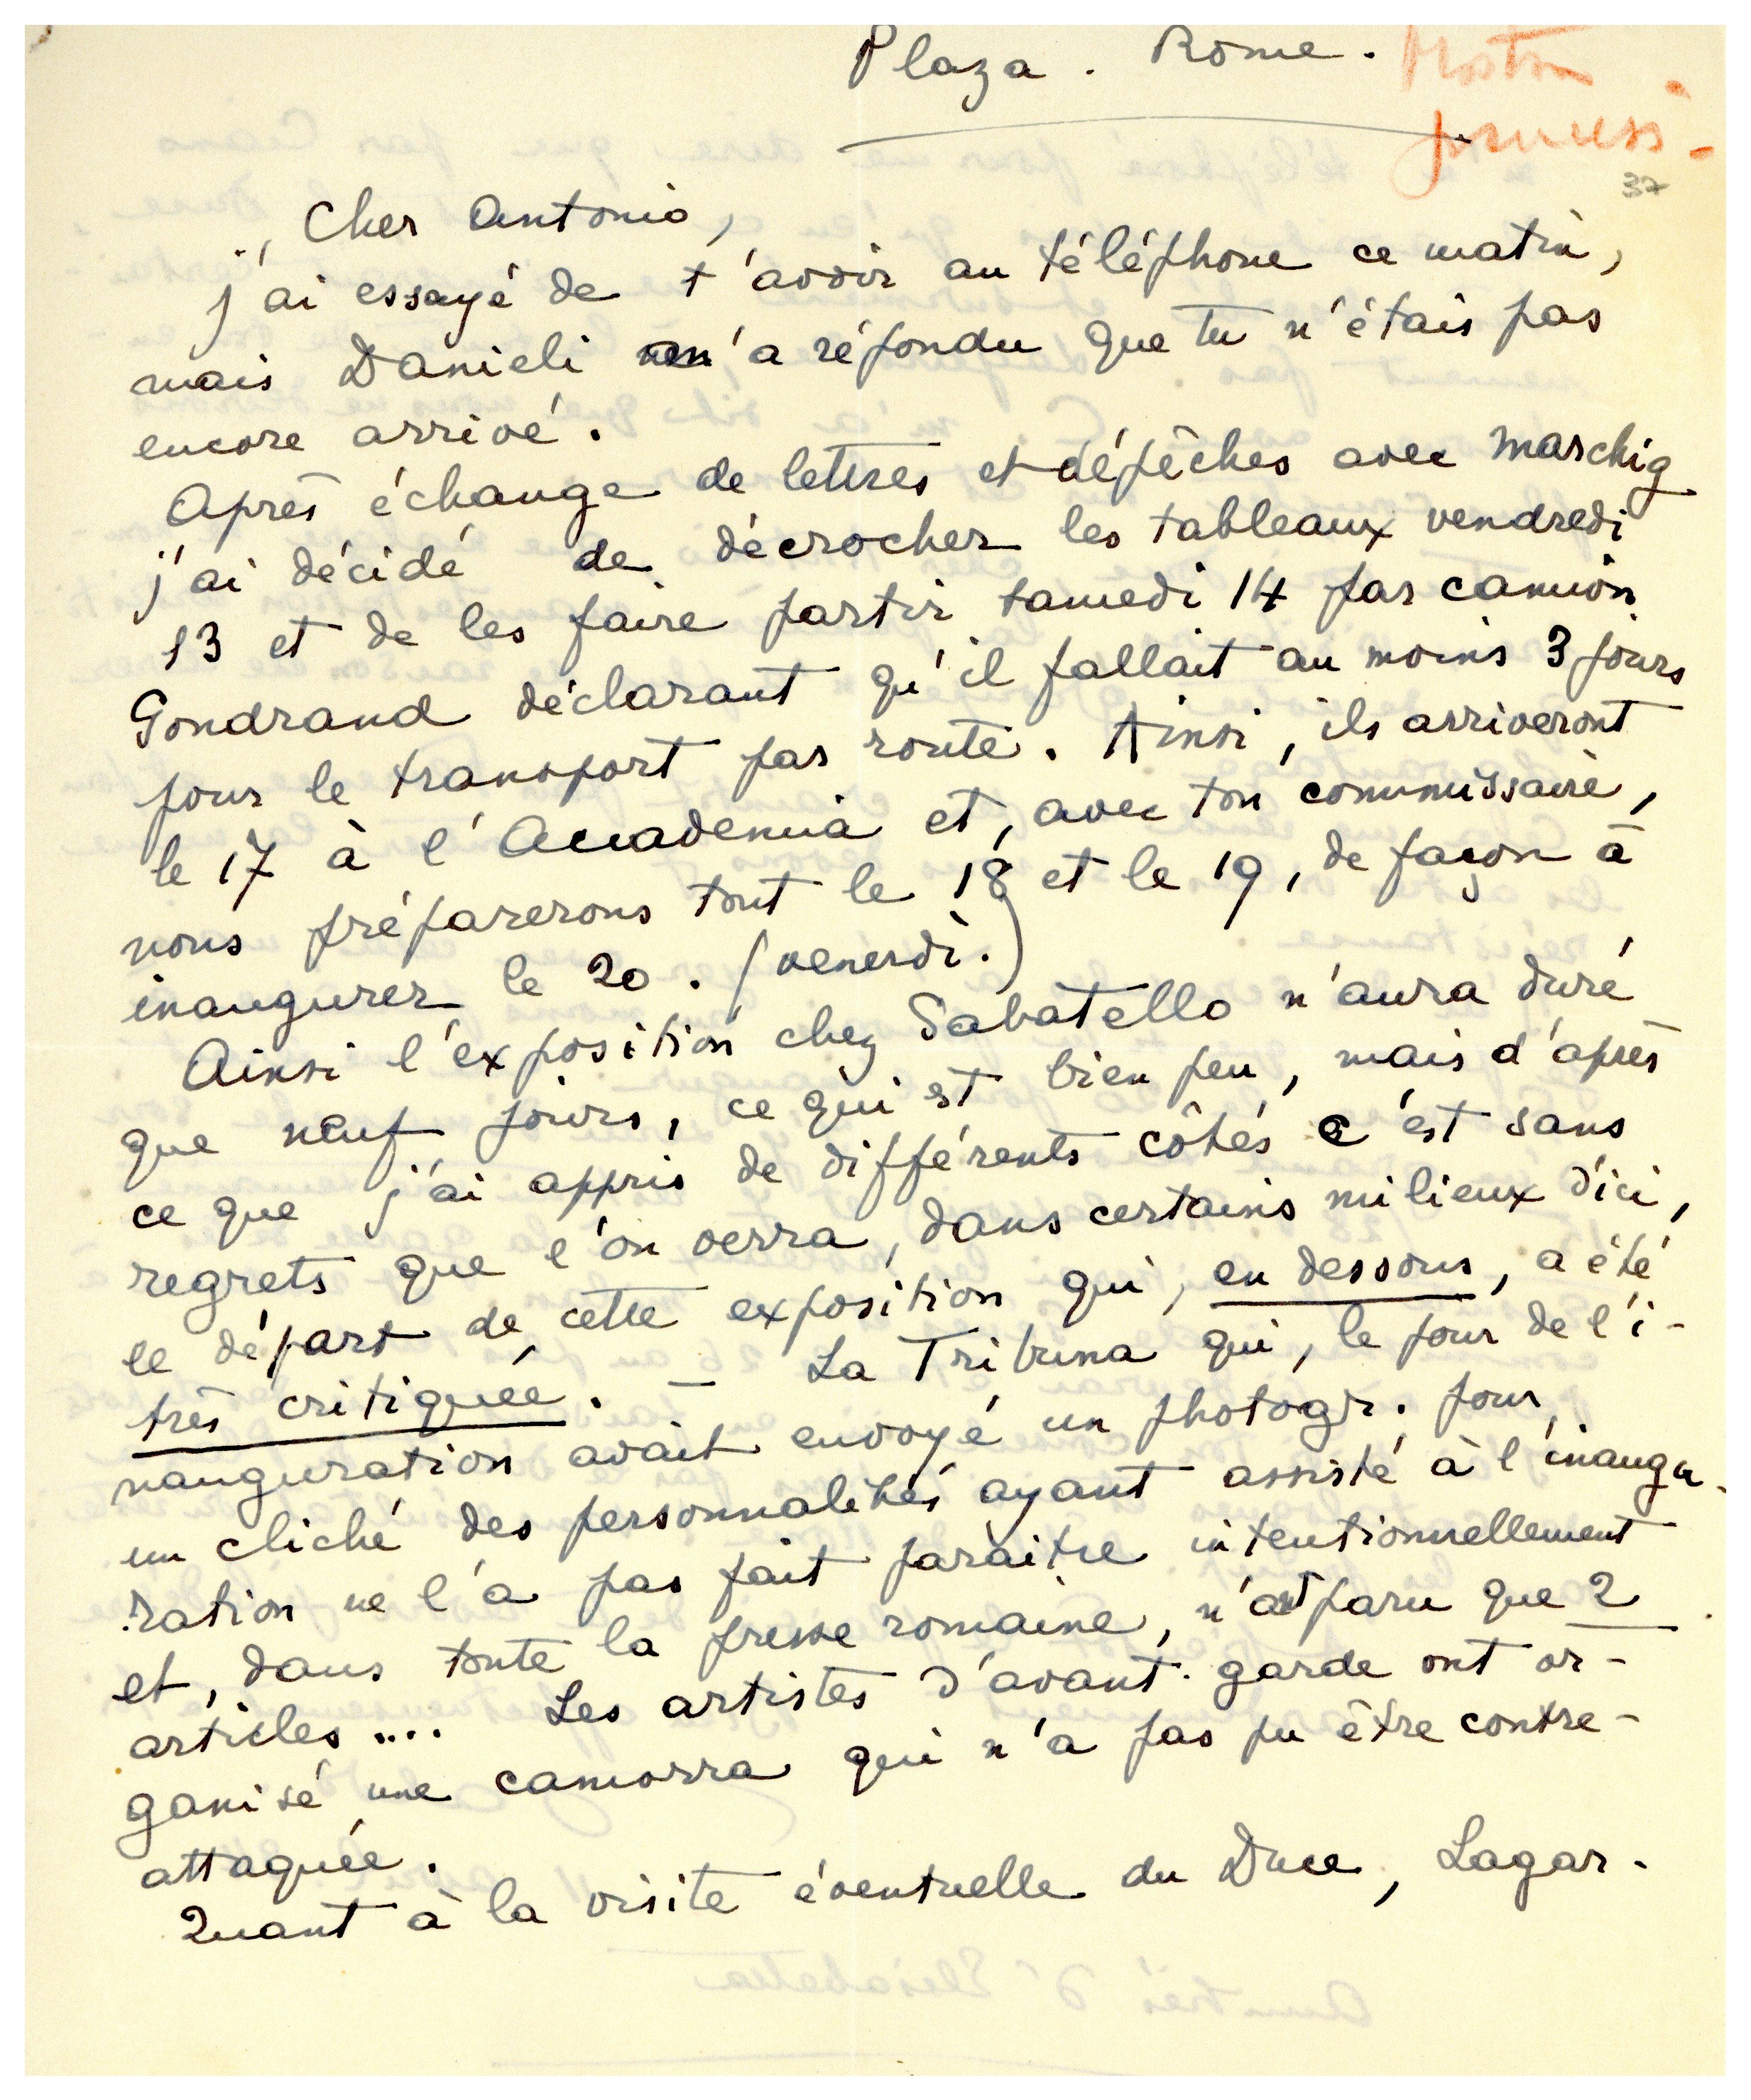 Plaza. Rome.
37
Cher Antonio,
j'ai essayé de t'avoir au téléphone ce matin,
mais Danieli m'a répondu que tu n'étais pas
encore arrivé.
Après échange de lettres et dépêches avec Marchig
j'ai décidé de décrocher les tableaux vendredi
13 et de les faire partir samedi 14 par camion
Gondrand déclarant qu'il fallait au moins 3 jours
pour le transport par route. Ainsi, ils arriveront
le 17 à l'Accademia et, avec ton commissaire,
nous préparerons tout le 18 et le 19, de façon à
inaugurer le 20. (venerdì.)
Ainsi l'exposition chez Sabatello n'aura duré
que neuf jours, ce qui est bien peu, mais d'après
ce que j'ai appris de différents côtés c'est sans
regrets que l'on verra, dans certains milieux d'ici,
le départ de cette exposition qui, en dessous, a été
très critiquée. — La Tribuna qui, le jour de l'i-
nauguration avait envoyé un photogr. pour
un cliché des personnalités ayant assisté à l'inaugu-
ration ne l'a pas fait paraître intentionnellement
et, dans toute la presse romaine, n'ont paru que 2
articles .... Les artistes d'avant-garde ont or-
ganisé une camorra qui n'a pas pu être contre-
attaquée.
Quant à la visite éventuelle du Duce, Lagar-